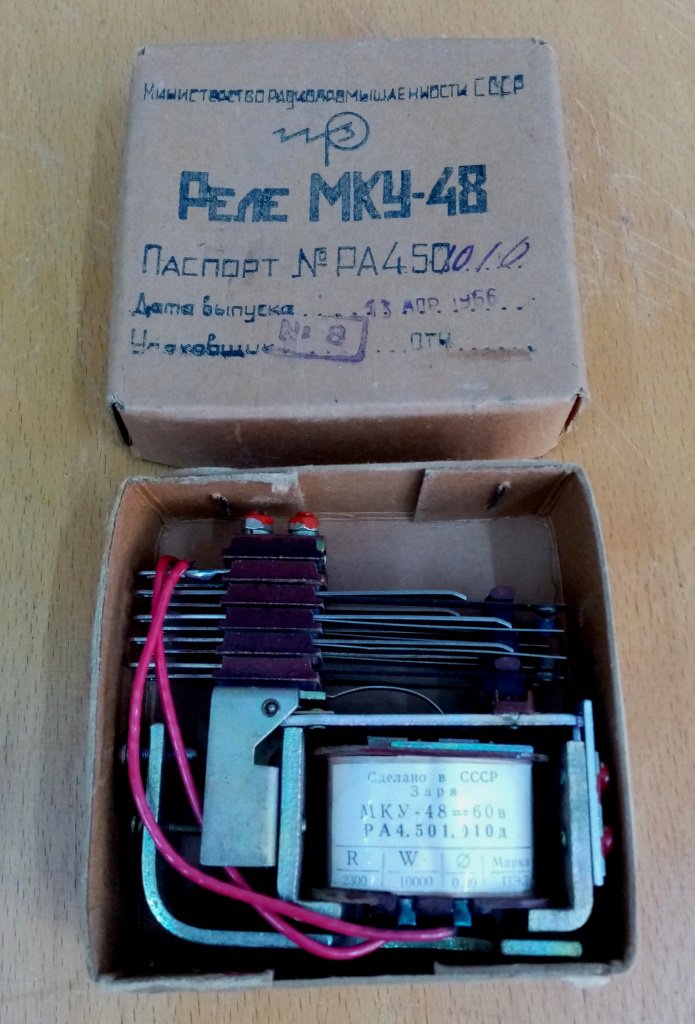 Министерство радиопромышленности СССР
Реле МКУ-48
Паспорт № РА4.5010.1.0
Дата выпуска.....13 АПР. 1966...
Упаковщик № 8 ..... ОТК.......
Сделано в СССР
Заря
МКУ-48=60в
РА4.501.010д
R W ∅ Марка
2300 10000